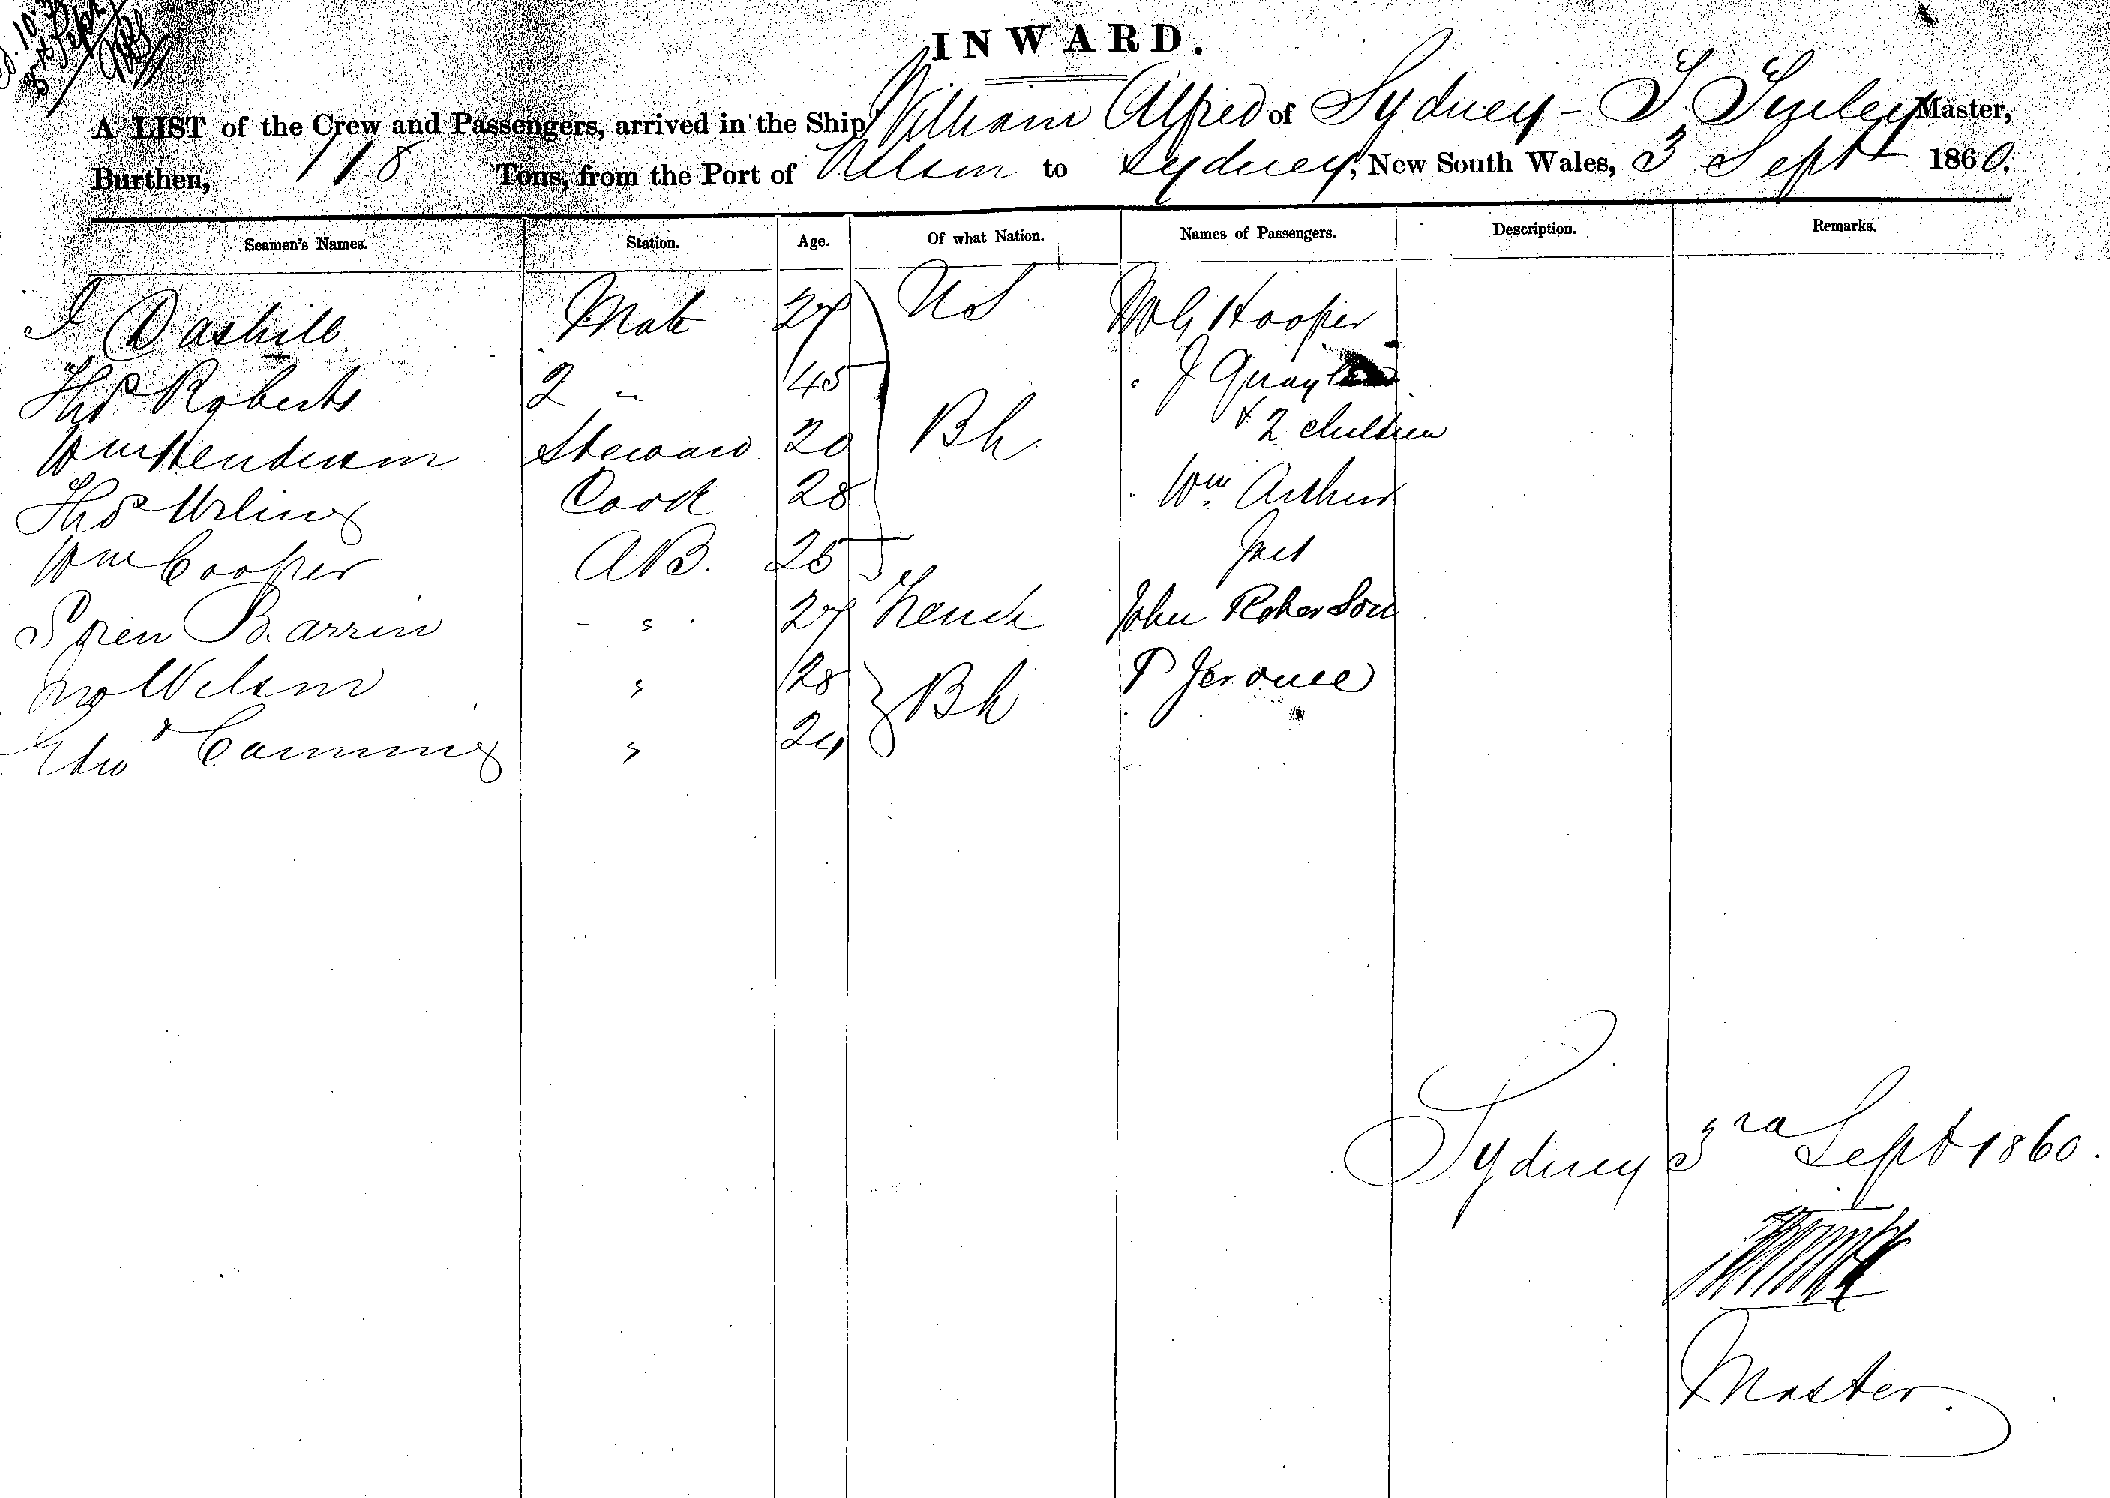 INWARD.
A LIST of the Crew and Passengers, arrived in the Ship William Alfred of Sydney - T. Tinley Master,
Burthen, 118 Tons, from the Port of Nelson to Sydney, New South Wales, 3 Sept 1860.
Seamen's Names. Station. Age. Of what Nation. Names of Passengers. Description. Remarks.
Mate 27 US Hooper
Thos Roberts 2 " 45 J Quayle
Wm Henderson Steward 20 Bh & 2 children
Thos Cook 28 Wm Arthur
Wm Cooper AB. 25
Soren Barrin " 27 French John Roberson
Jno Wilson " 28 Bh P Jerome
Edwd Cumming " 24
Sydney 3rd Sept 1860.
Master.